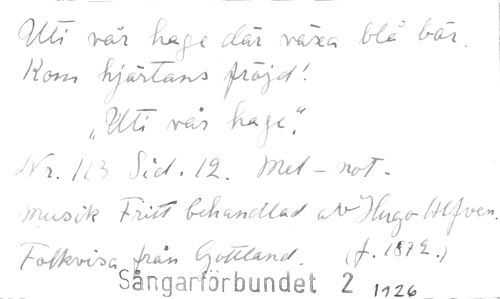 Uti vår hage där växa blå bär.
Kom hjärtans fröjd!
"Uti vår hage".
Nr. 113 Sid. 12. Mel-not.
musik Fritt behandlad av Hugo Alfven.
Folkvisa från Gottland. (f. 1872.)
Sångarförbundet 2 1926